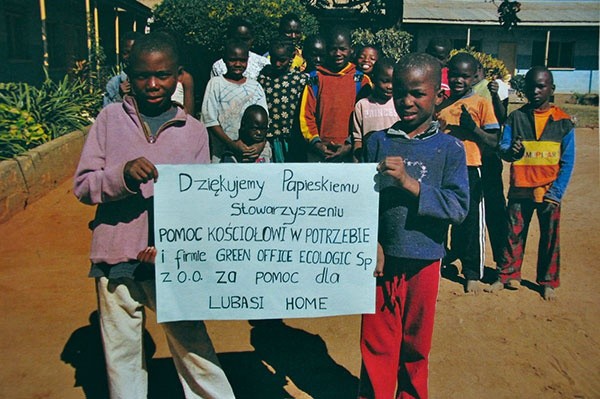 Dziękujemy Papieskiemu
Stowarzyszeniu
POMOC KOŚCIOŁOWI W POTRZEBIE
i firmie GREEN OFFICE ECOLOGIC Sp
z o.o. za pomoc dla
LUBASI HOME